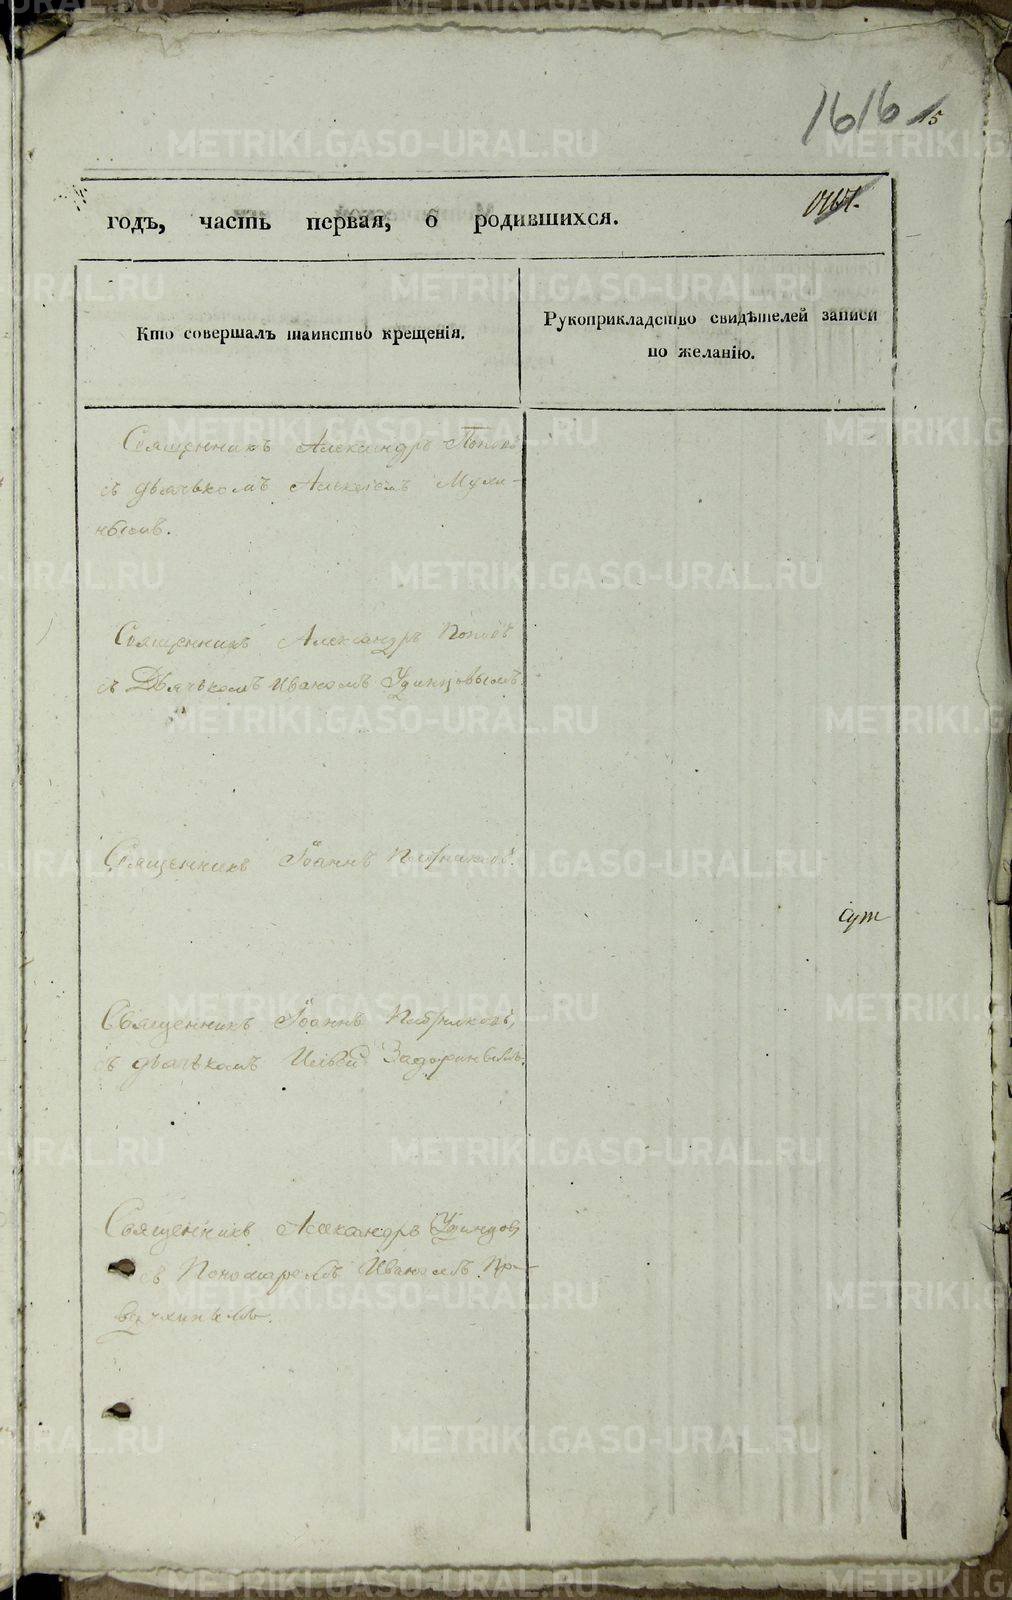 1616
15
годъ, часть первая, о родившихся.
Кто совершалъ таинство крещенія.
Рукоприкладство свидѣтелей записи
по желанію.
Священникъ Александръ Поповъ
съ дьячькомъ Алексіемъ Мухи-
нымъ.
Священникъ Александръ Поповъ
съ Дьячькомъ Иваномъ Удинцовымъ.
Священникъ Іоаннъ
сут
Священникъ Іоаннъ
съ дьячькомъ Ильёй Задоринымъ.
Священникъ Александръ Удинцов
съ Пономаремъ Иваномъ
METRIKI.GASO-URAL.RU